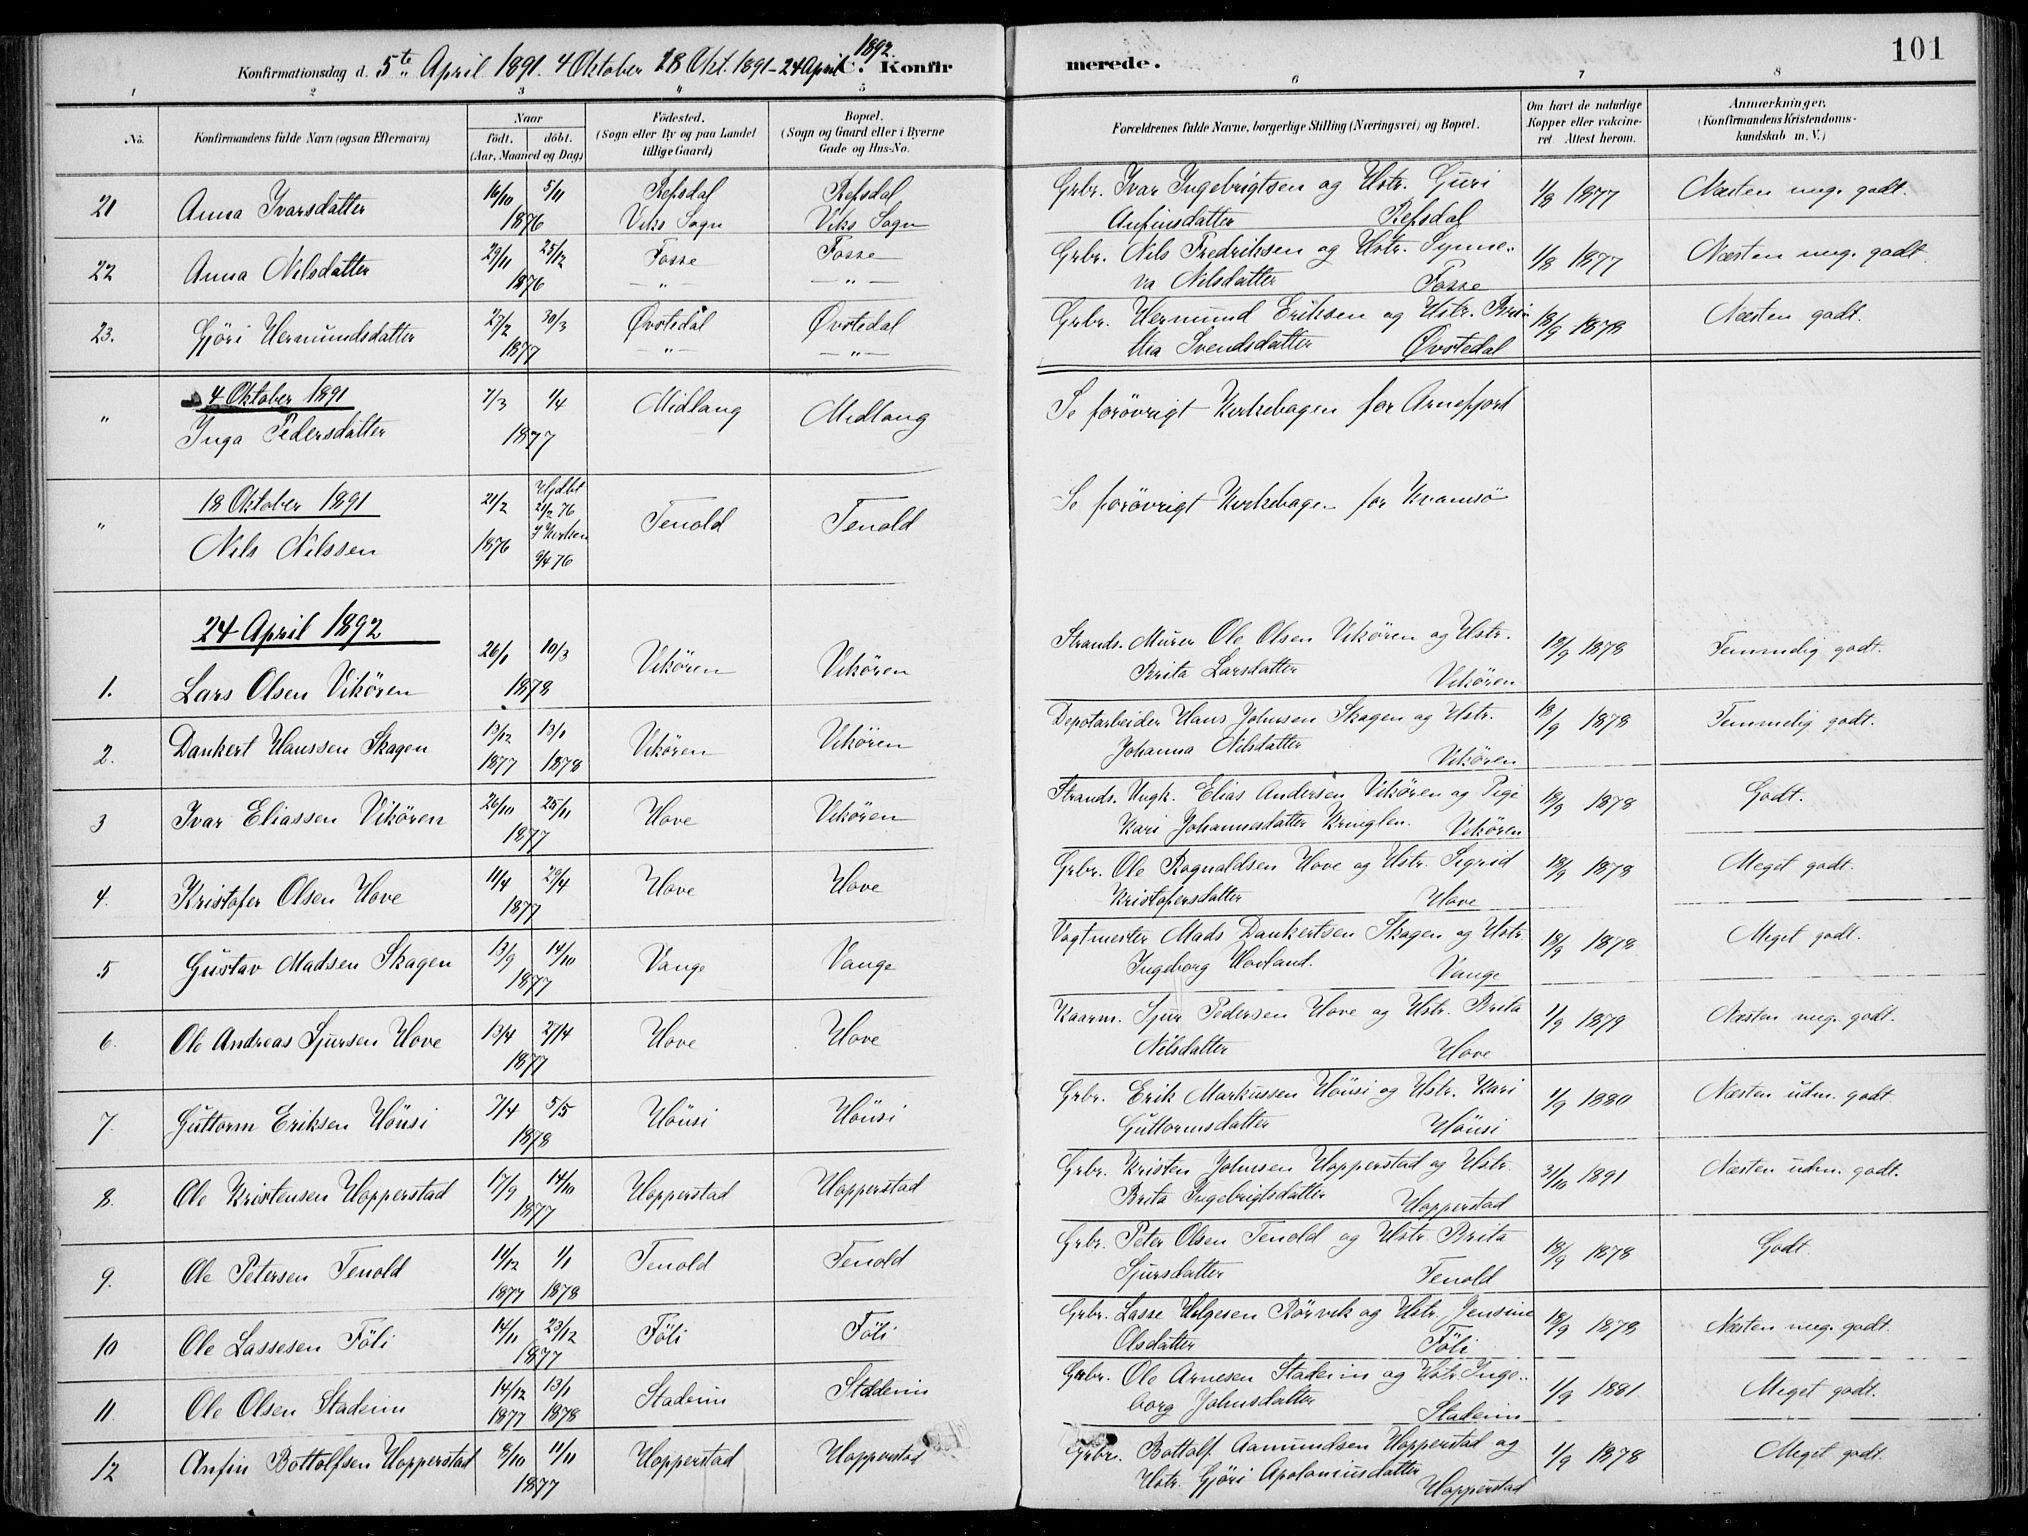 101
Konfirmationsdag d. 5te April 1891. 4 Oktober 18 Okt. 1891 - 24 April 1892. C. Konfirmerede.
1 2 3 4 5 6 7 8
No. Konfirmandens fulde Navn (ogsaa Efternavn) Naar Født. døbt. (Aar, Maaned og Dag) Fødested. (Sogn eller By og paa Landet tillige Gaard) Bopæl. (Sogn og Gaard eller i Byerne Gade og Hus-No. Forældrenes fulde Navne, borgerlige Stilling (Næringsvei) og Bopæl. Om havt de naturlige Kopper eller vaccineret. Attest herom. Anmærkninger. (Konfirmandens Kristendomskundskab m. V.)
21 Anna Ivarsdatter 16/10 5/11 1876 Refsdal Viks Sogn Refsdal Viks Sogn Grbr. Ivar Ingebrigtsen og Hstr. Guri Anfinsdatter Refsdal 1/8 1877 Næsten meg. godt.
22 Anna Nilsdatter 29/11 25/12 1876 Fosse — " — Fosse — " — Grbr. Nils Fredriksen og Hstr. Synneva Nilsdatter Fosse 1/8 1877 Næsten meg. godt.
23. Gjøri Hermundsdatter 27/2 30/3 1877 Øvstedal — " — Øvstedal — " — Grbr. Hermund Eriksen og Hstr. Britha Svendsdatter Øvstedal 18/9 1878 Næsten godt.
4 Oktober 1891
" Inga Pedersdatter 7/3 1/4 1877 Midlang Midlang Se forøvrigt Kirkebogen for Arnefjord
18 Oktober 1891
" Nils Nilssen 21/2 1876 Hjdbt 21/2 76 I Kirken 9/4 76 Tenold Tenold Se forøvrigt Kirkebogen for Kvamsø
24 April 1892
1. Lars Olsen Vikören 26/1 10/3 1878 Vikören Vikören Strands. Murer Ole Olsen Vikören og Hstr. Brita Larsdatter Vikören 18/9 1878 Temmelig godt.
2. Dankert Hanssen Skagen 13/12 1877 13/1 1878 Vikören Vikören Depotarbeider Hans Johnsen Skagen og Hstr. Johanna Nilsdatter Vikören 18/9 1878 Temmelig godt.
3 Ivar Eliassen Vikören 26/10 25/11 1877 Hove Vikören Strands. Ungk. Elias Andersen Vikören og Pige Kari Johannesdatter Kringlen. Vikören 18/9 1878 Godt.
4. Kristofer Olsen Hove 11/4 29/4 1877 Hove Hove Grbr. Ole Ragnaldsen Hove og Hstr. Sigrid Kristofersdatter Hove 18/9 1878 Meget godt.
5 Gustav Madsen Skagen 13/9 14/10 1877 Vange Vange Vagtmester Mads Dankertsen Skagen og Hstr. Ingeborg Hovland. Vange 18/9 1878 Meget godt.
6. Ole Andreas Sjursen Hove 13/4 27/4 1877 Hove Hove Kaarm. Sjur Pedersen Hove og Hstr. Brita Nilsdatter Hove 1/9 1879 Næsten meg. godt.
7. Guttorm Eriksen Hönsi 7/4 5/5 1878 Hönsi Hönsi Grbr. Erik Markussen Hönsi og Hstr. Kari Guttormsdatter Hönsi 1/9 1880 Næsten udm. godt.
8. Ole Kristensen Hopperstad 17/9 14/10 1877 Hopperstad Hopperstad Grbr. Kristen Johnsen Hopperstad og Hstr. Brita Ingebrigtsdatter Hopperstad 3/10 1891 Næsten udm. godt.
9. Ole Petersen Tenold 14/12 1877 1/1 1878 Tenold Tenold Grbr. Peter Olsen Tenold og Hstr. Brita Sjursdatter Tenold 18/9 1878 Godt.
10 Ole Lassesen Föli 14/11 23/12 1877 Föli Föli Grbr. Lasse Helgesen Rörvik og Hstr. Jensine Olsdatter Föli 18/9 1878 Næsten meg. godt.
11. Ole Olsen Stadeim 14/12 1877 13/1 1878 Stadeim Stadeim Grbr. Ole Arnesen Stadeim og Hstr. Ingeborg Johnsdatter Stadeim 1/9 1881 Meget godt.
12 Anfin Bottolfsen Hopperstad 8/10 11/11 1877 Hopperstad Hopperstad Grbr. Bottolf Aamundsen Hopperstad og Hstr. Gjöri Apoloniusdatter Hopperstad 1/9 1878 Meget godt.